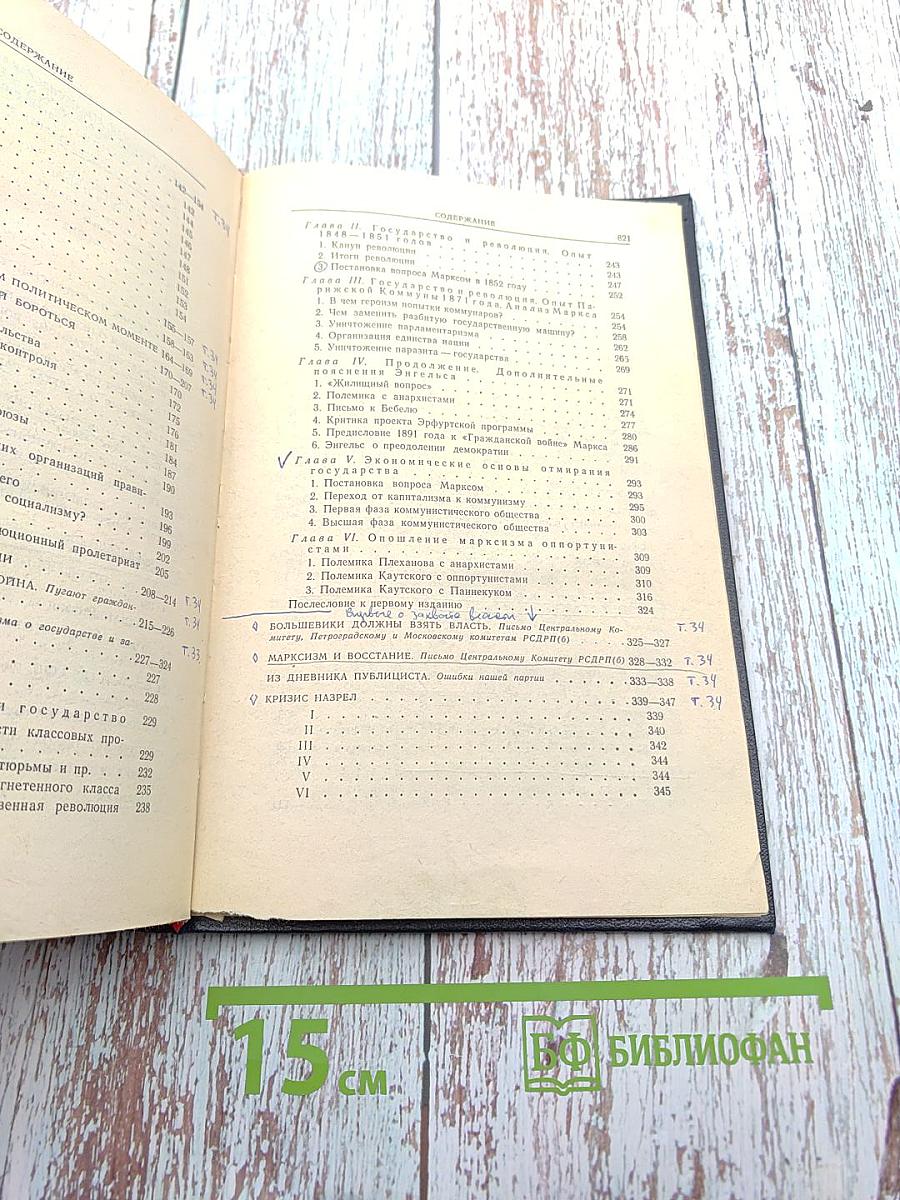 СОДЕРЖАНИЕ
142—154 т.34
142
143
144
145
146
147
148
151
152
153
154
М ПОЛИТИЧЕСКОМ МОМЕНТЕ 155—157 т.34
Я БОРОТЬСЯ 158—163 т.34
164—169 т.34
льства 170—207 т.34
контроля 170
172
175
юзы 176
181
184
187
ких организаций прави-
190
его 193
социализму? 196
199
202
юционный пролетариат 205
ИИ 208—214 т.34
ОЙНА. Пугают граждан-
215—226 т.34
зма о государстве и за-
227—324 т.33
227
228
и государство 229
сти классовых про-
229
тюрьмы и пр. 232
гнетенного класса 235
венная революция 238
СОДЕРЖАНИЕ 821
Глава II. Государство и революция. Опыт
1848—1851 годов 243
1. Канун революции 243
2. Итоги революции 247
3 Постановка вопроса Марксом в 1852 году 252
Глава III. Государство и революция. Опыт Па-
рижской Коммуны 1871 года. Анализ Маркса 254
1. В чем героизм попытки коммунаров? 254
2. Чем заменить разбитую государственную машину? 258
3. Уничтожение парламентаризма 262
4. Организация единства нации 265
5. Уничтожение паразита — государства 269
Глава IV. Продолжение. Дополнительные
пояснения Энгельса 271
1. «Жилищный вопрос» 271
2. Полемика с анархистами 274
3. Письмо к Бебелю 277
4. Критика проекта Эрфуртской программы 280
5. Предисловие 1891 года к «Гражданской войне» Маркса 286
6. Энгельс о преодолении демократии 291
Глава V. Экономические основы отмирания
государства 293
1. Постановка вопроса Марксом 293
2. Переход от капитализма к коммунизму 295
3. Первая фаза коммунистического общества 300
4. Высшая фаза коммунистического общества 303
Глава VI. Опошление марксизма оппортуни-
стами 309
1. Полемика Плеханова с анархистами 309
2. Полемика Каутского с оппортунистами 310
3. Полемика Каутского с Паннекуком 316
Послесловие к первому изданию 324
Впервые о захвате власти
БОЛЬШЕВИКИ ДОЛЖНЫ ВЗЯТЬ ВЛАСТЬ. Письмо Центральному Ко- т.34
митету, Петроградскому и Московскому комитетам РСДРП(б) 325—327
МАРКСИЗМ И ВОССТАНИЕ. Письмо Центральному Комитету РСДРП(б) 328—332 т.34
ИЗ ДНЕВНИКА ПУБЛИЦИСТА. Ошибки нашей партии 333—338 т.34
КРИЗИС НАЗРЕЛ 339—347 т.34
I 339
II 340
III 342
IV 344
V 344
VI 345
15 см
БФ БИБЛИОФАН